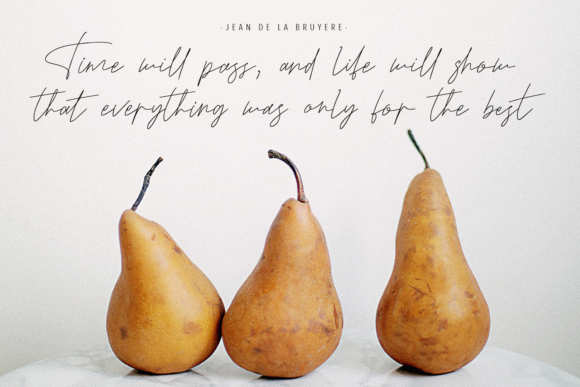 ·JEAN DE LA BRUYERE·
Time will pass, and life will show
that everything was only for the best